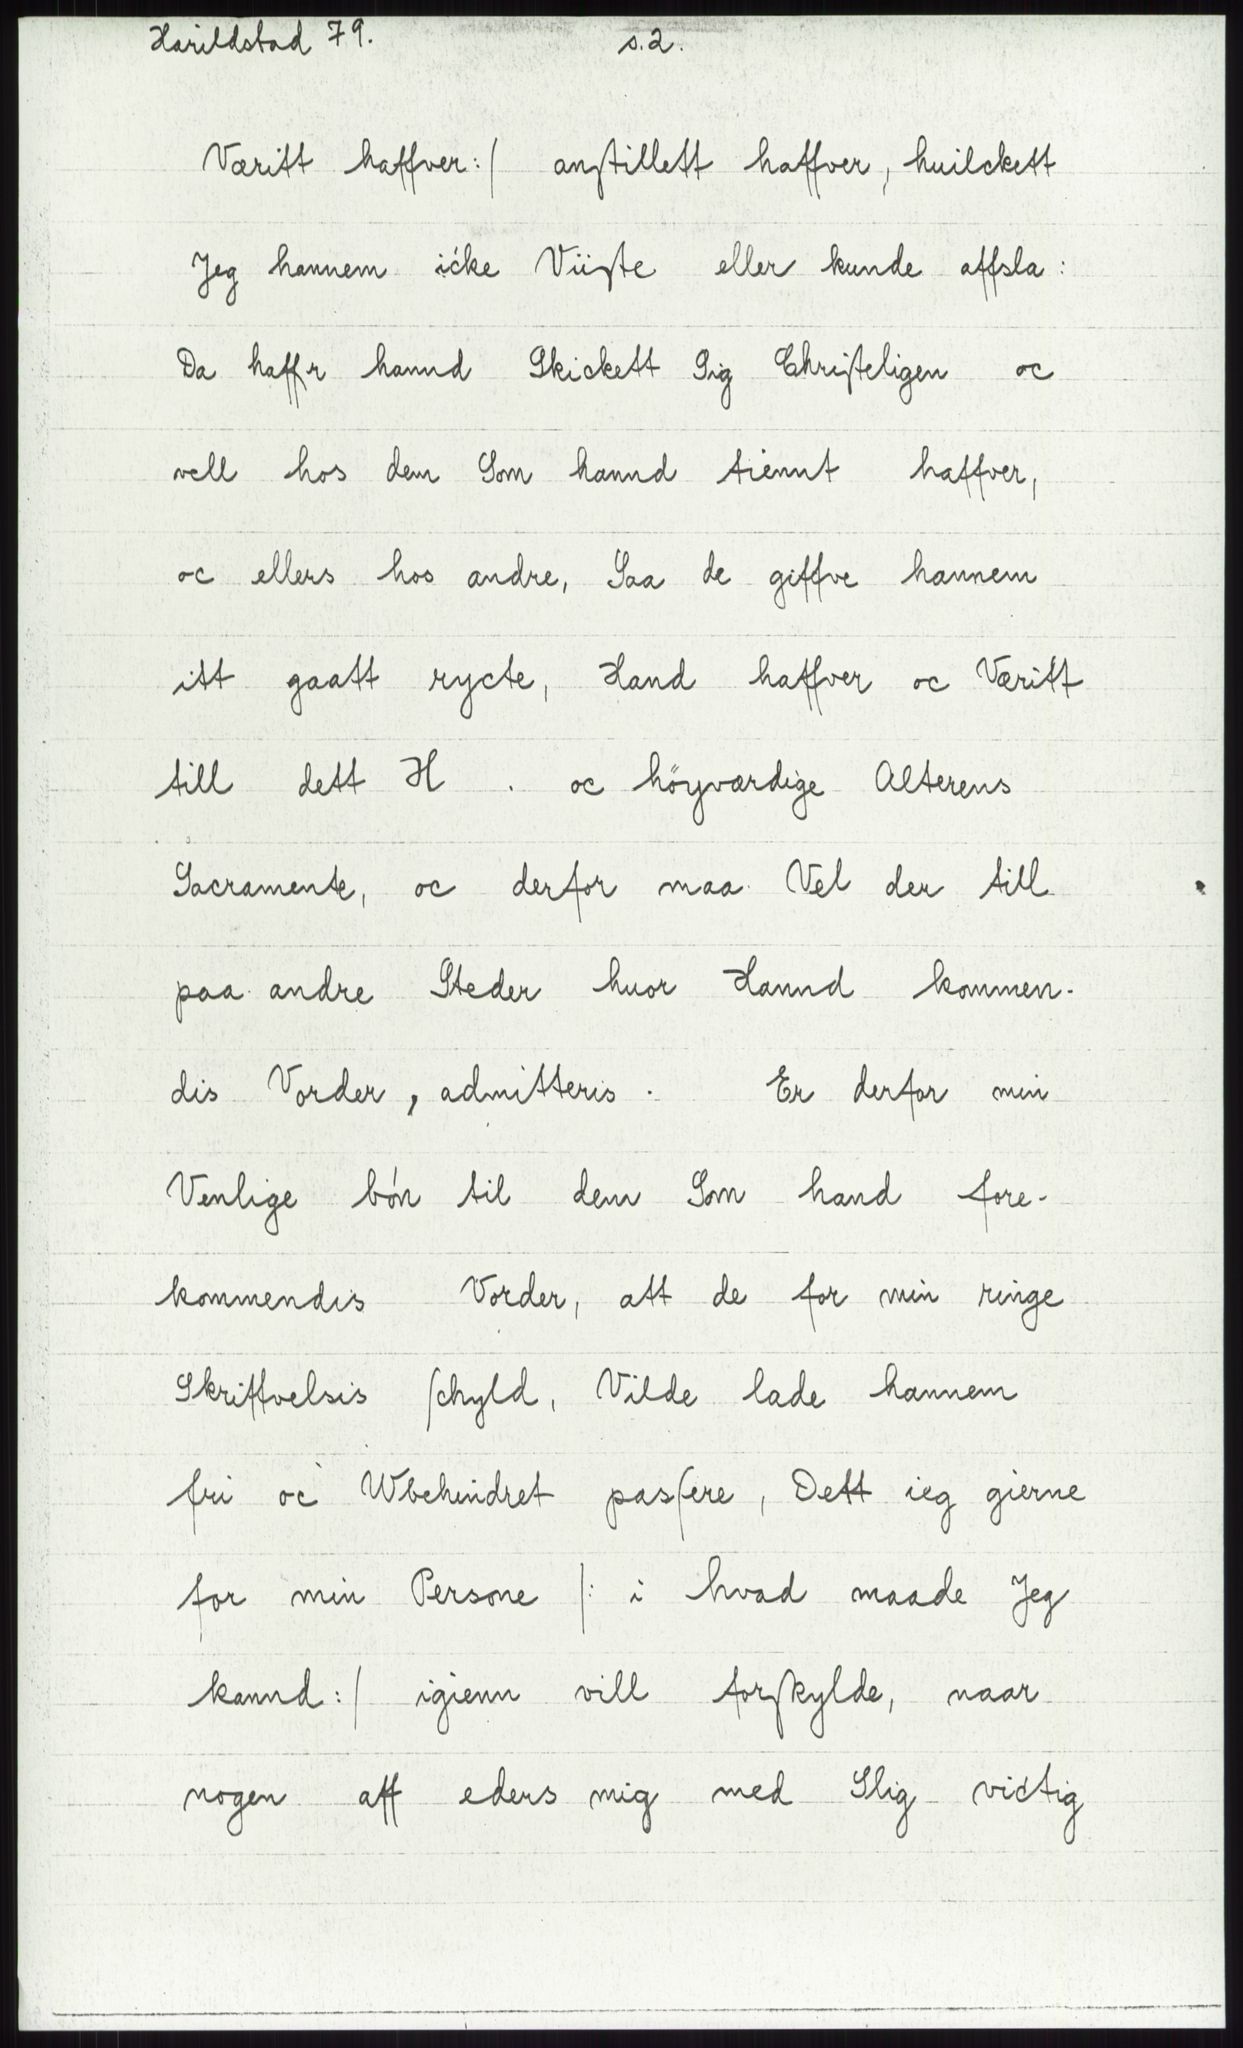 Harildstad 79. s.2.
Væritt haffver:/ anstillett haffver, huilckett
Jeg hannem icke Viiste eller kunde affsla:
Da haffr hannd Skickett Sig Christeligen oc
vell hos dem Som hannd tiennt haffver,
oc ellers hos andre, Saa de giffve hannem
itt gaatt rycte, Hand haffver oc Væritt
till dett H . oc höyværdige Alterens
Sacramente, oc derfor maa Vel der till
paa andre Steder huor Hannd kommen-
dis Vorder, admitteris. Er derfor min
Venlige bón til dem Som hand fore-
kommendis Vorder, att de for min ringe
Skriffvelsis schyld, Vilde lade hannem
fri oc Wbehindret passere, Dett ieg gierne
for min Persone /: i hvad maade Jeg
kannd:/ igienn vill forskylde, naar
nogen aff eders mig med Slig victig